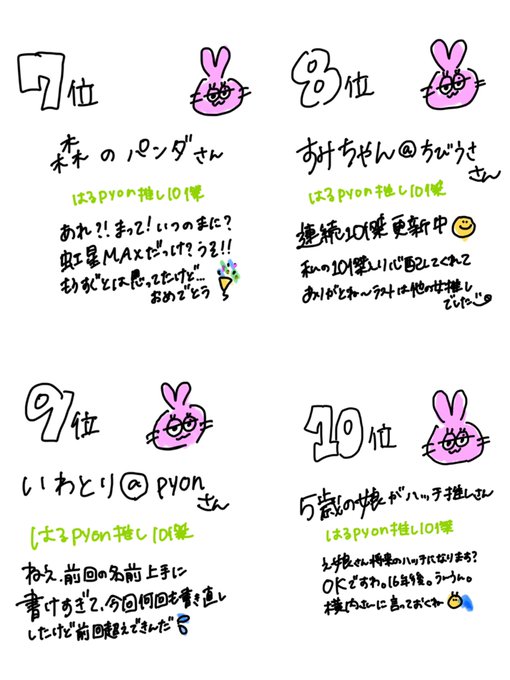 7位
森のパンダさん
はるpyon推し10傑
あれ?!まって!いつのまに?
虹星MAXだっけ?うそ!!
もうすぐとは思ってたけど…
おめでとう
8位
すみちゃん@ちびうささん
はるpyon推し10傑
連続10傑更新中
私の10傑入り心配してくれて
ありがとね〜ラストは他の女推し
でした
9位
いわとり@pyon
さん
はるpyon推し10傑
ねえ、前回の名前上手に
書けすぎて、今回何回も書き直し
したけど前回超えできんだ
10位
5歳の娘がハッチ推しさん
はるpyon推し10傑
え、娘さん将来のハッチになります?
OKですわ。16年後。うーうん。
横内さんに言っておくね